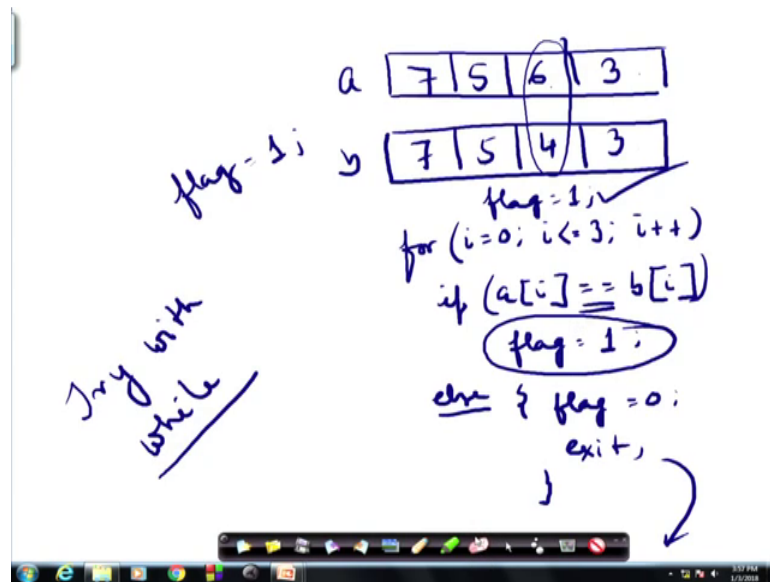 a 7 5 6 3
b 7 5 4 3
flag = 1;
flag = 1;
for (i=0; i<=3; i++)
if (a[i] == b[i])
flag = 1;
else { flag = 0;
exit;
}
Try with
while
3:57 PM
1/3/2018